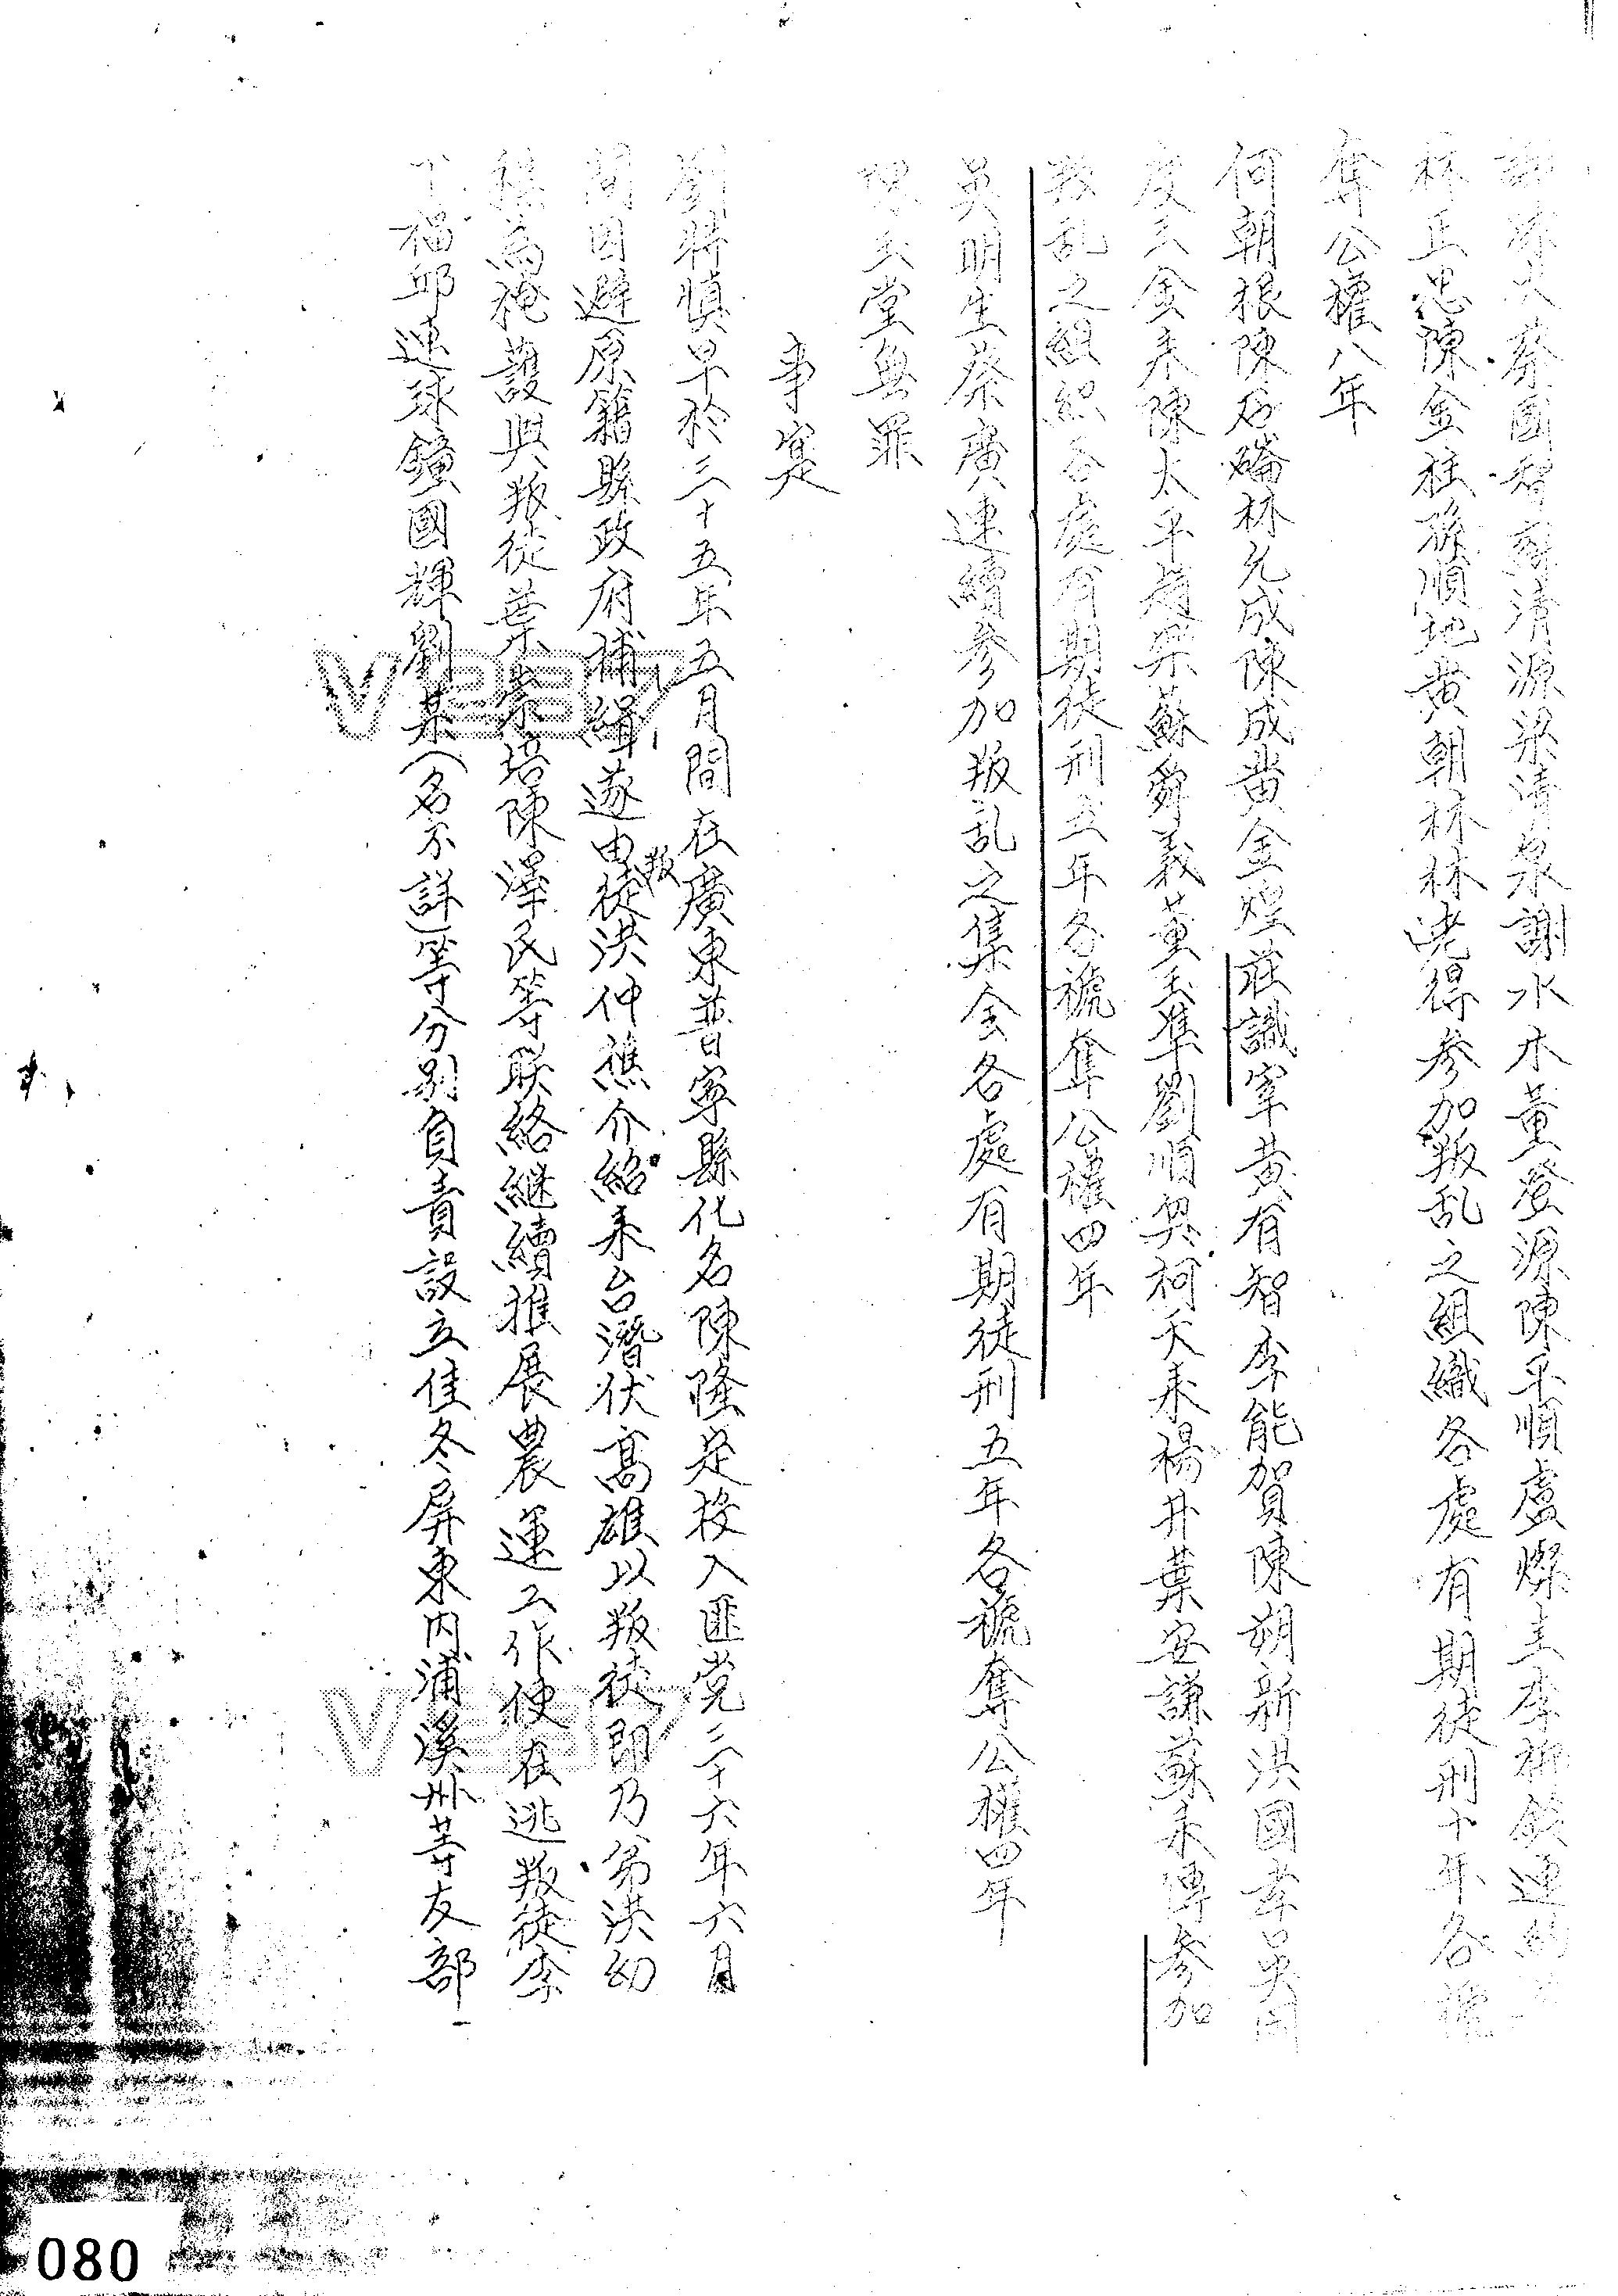 謝添火蔡國智謝清源梁清泉謝水木董登源陳平順盧燦圭李柳鋑連約
林正忠陳金柱孫順地黄朝林林洸得參加叛乱之組織各處有期徒刑十年各褫
奪公權八年
何朝根陳石碖林允成陳成黄金煌莊識宰黃有智李能賀陳朔新洪國孝吳国
度王金來陳太平趙犂蘇舜義董玉準劉順與祠天來楊井葉安謙蘇來傳參加
叛乱之組织各處有期徒刑五年各褫奪公權四年
吳明生蔡廣連續參加叛乱之集會各處有期徒刑五年各褫奪公權四年
玉堂無罪
事実
劉特慎早於三十五年五月間在廣東普寧縣化名陳隆是投入匪党三十六年六月
間因避原籍縣政府補緝遂由叛徒洪仲樵介紹来台潛伏高雄以叛徒即乃弟洪幼
樵為掩護與叛徒葉崇培陳澤民等联絡継續推展農運工作使在逃叛徒李
丁福邱連球鐘國輝劉某(名不詳)等分别負責設立佳冬屏東内浦溪州等友部
V 237
V 237
080